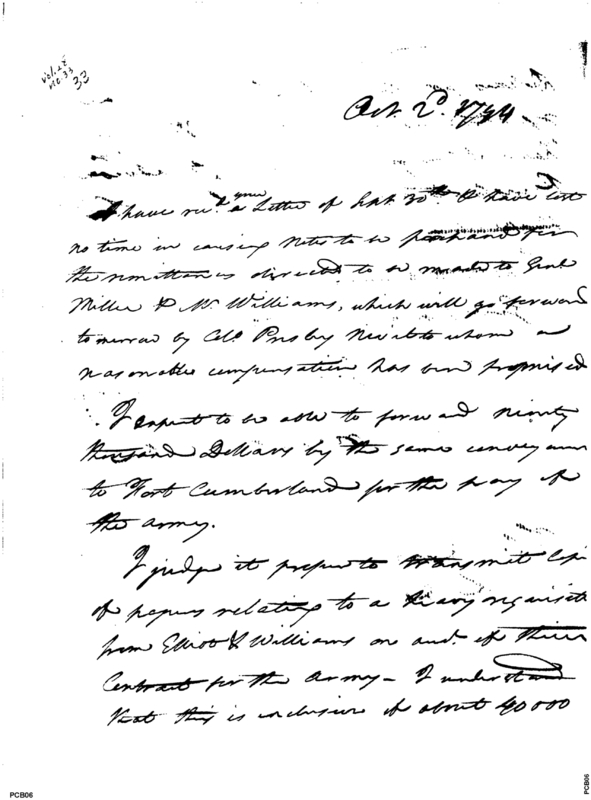 Vol. 28
No. 33
33
Oct. 2d. 1794
I have recd. your Letter of Sept 30th & have lost
no time in causing Notes to be
the remittances directed to be made to Genl
Miller & Mr. Williams, which will go forward
tomorrow by Colo. Presby to whom a
reasonable compensation has been promised
I expect to be able to forward ninety
thousand Dollars by the same conveyance
to Fort Cumberland for the pay of
the army.
I judge it proper to transmit Copies
of papers relating to a heavy requisition
from Elliot & Williams on acct. of their
Contract for the Army - I understand
that this is inclusive of about 40000
PCB06
PCB06